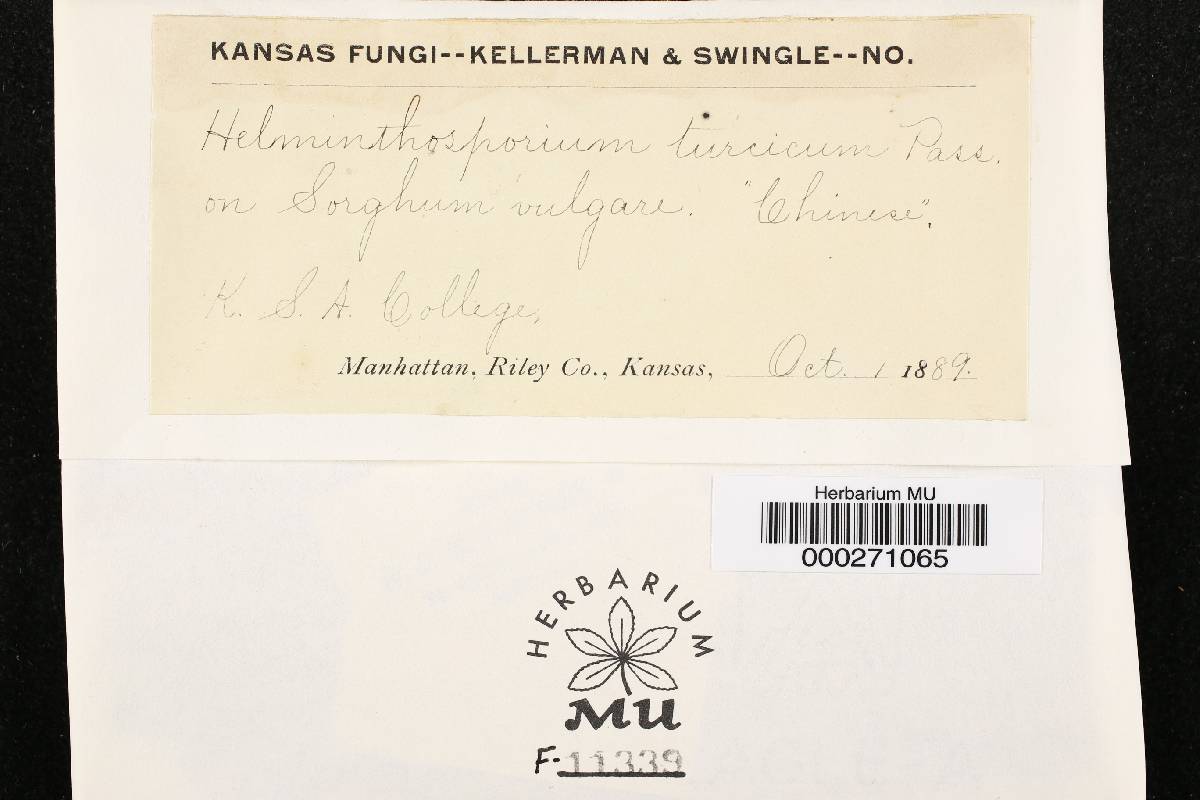 KANSAS FUNGI--KELLERMAN & SWINGLE--NO.
Helminthosporium turcicum Pass.
on Sorghum vulgare. "Chinese".
K. S. A. College,
Manhattan, Riley Co., Kansas, Oct. 1 1889.
Herbarium MU
000271065
HERBARIUM
MU
F-11339